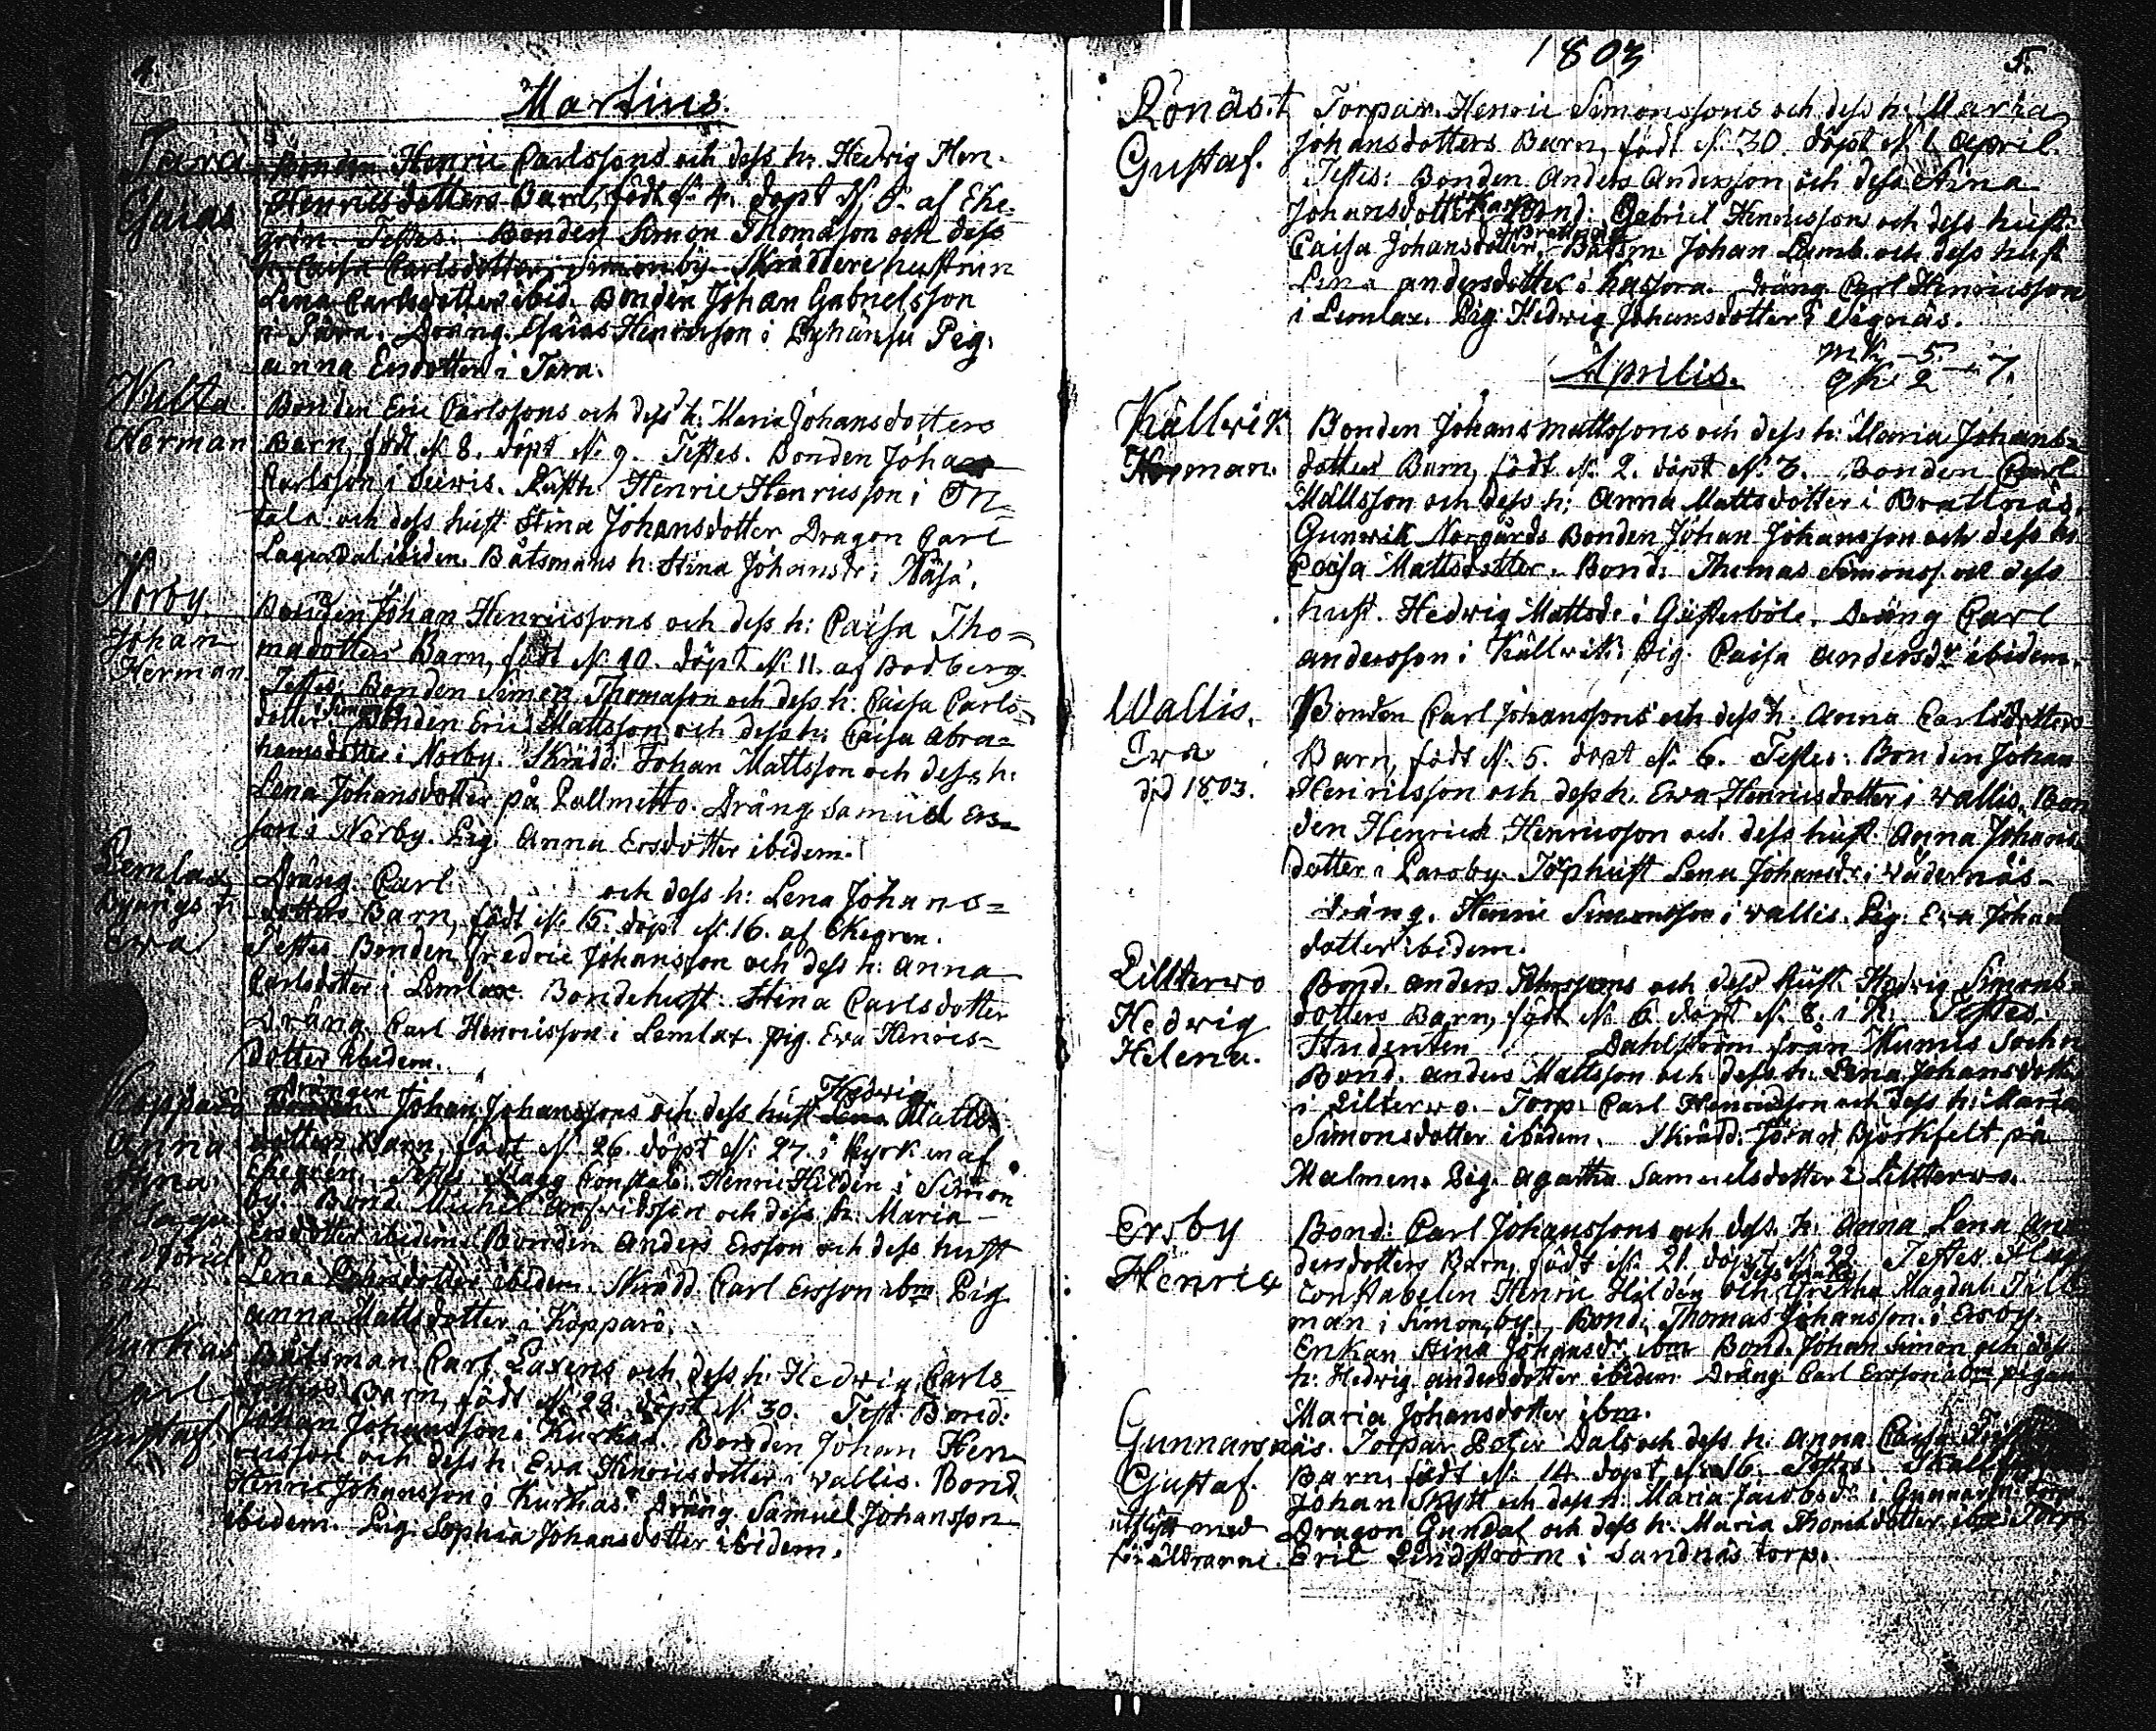 4
Martius.
Tara Bonden Henric Carlssons och dess h. Hedwig Hen-
Esaias Henricsdotters Barn, födt d. 4. döpt N. 5. af Ehe-
gren. Testes: Bonden Simon Thomasson och dess
h. Caisa Carlsdotter i Simonby. Skräddere hustrun
Lena Carlsdotter ibid. Bonden Johan Gabrielsson
i Tara. Dräng. Esaias Henricsson i Pig.
anna Ersdotter i Tara.
Nulto Bonden Eric Carlssons och dess h. Maria Johansdotters
Herman Barn, födt N. 8. döpt N. 9. Testes. Bonden Johan
Carlsson i Rusth. Henric Henricsson i
och dess hust. Stina Johansdotter Dragon Carl
Lagerdal ibidem. Båtsmans h: Stina Johansdr i
Norby Bonden Johan Henricssons och dess h: Caisa Tho=
Johan madotters Barn, födt N. 10. döpt N. 11. af Bodberg.
Herman. Testes: Bonden Simon Thomason och dess h: Caisa Carls=
dotter i Simonby Bonden Eric Mattsson och dess h: Caisa Abra=
hamsdotter i Norby. Skrädd: Johan Mattsson och dess h:
Lena Johansdotter på Pallmetto. Dräng Samuel Ers=
son i Norby. Pig. Anna Ersdotter ibidem.
Lemlax Dräng. Carl och dess h: Lena Johans=
Byängs t. dotters Barn, födt N. 15. döpt N. 16. af Ehegren.
Ewa. Testes Bonden Fredric Johansson och dess h: Anna
Carlsdotter i Lemlax. Bondehust. Stina Carlsdotter
Dräng. Carl Henricsson i Lemlax. pig. Eva Henrics=
dotter ibidem.
Kopparö Drängen Johan Johanssons och dess hust Hedwig Matts
Anna dotters Barn, födt N. 26. döpt N. 27. i Kyrkan af
Stina. Ehegren. Testes Magg Constab: Henric Hildén i Simon
by. Bond. Michel Anfridsson och dess h. Maria
Ersdotter ibidem. Bonden Anders Ersson och dess hust
Lena Johansdotter ibidem. Skrädd. Carl Ersson ibm Pig
anna Mattsdotter i Kopparö.
Kurkas Båtsman Carl Laxens och dess h: Hedwig Carls
Carl dotters Barn, födt N. 29. döpt N. 30. Test. Bond:
Gustaf. Johan Johansson i Kurkas. Bonden Johan Hen
ricsson och dess h. Eva Henricsdotter i Wallis. Bond
Henric Johansson i Kurkas. Dräng. Samuel Johansson
ibidem. Pig. Sophia Johansdotter ibidem.
1803
5.
Rönäs t Torpar. Henric Simonssons och dess h. Maria
Gustaf. Johansdotters Barn, födt N. 30. döpt N. 1. April.
Testes: Bonden Anders Andersson och dess Stina
Johansdotter Bond: Gabriel Henricsson och dess hust.
Caisa Johansdotter i Brattnäs Båtsm. Johan Lamb. och dess hust
Lena andersdotter i Dräng Carl Henricsson
i Lemlax. Pig. Hedwig Johansdotter i
Aprilis.
mk. 5.
qk. 2 = 7.
Källvik Bonden Johans mattssons och dess h: Maria Johans=
Herman. dotters Barn, födt N. 2. döpt N. 3. Bonden Carl
Mattsson och dess h: Anna Mattsdotter i Brattnäs.
Gunwik Norgårds Bonden Johan Johansson och dess h.
Caisa Mattsdotter. Bond: Thomas Simonss. och dess
hust. Hedwig Mattsd. i Gusterböle. Dräng Carl
andersson i Källwik. Pig. Caisa andersdr ibidem.
Wallis. Bonden Carl Johanssons och dess h: Anna Carlsdotters
Eva Barn, födt N. 5. döpt N. 6. Testes: Bonden Johan
död 1803. Henricsson och dess h. Ewa Henricsdotter i Wallis. Bon
den Henrich Henricsson och dess hust Anna Johans-
dotter i Parsby. Torphust Lena Johansdr i Vädernäs-
dräng. Henric Simonsson i Wallis. Pig. Eva Johan
dotter ibidem.
Lilltervo Bond. Anders och dess hust. Hedvig Simons
Hedwig dotters Barn, födt N. 6. döpt N. 8. i K. Testes.
Helena. Studenten Dahlström från Kumis Sochn
Bond. anders Mattsson och dess h: Lena Johansdott
i Lilltervo. Torp: Carl Henricsson och dess h: Maria
Simonsdotter ibidem. Skrädd. Johan Björkfelt på
Malmen. Pig. agatha Samuelsdotter i Lilltervo.
Ersby Bond: Carl Johanssons och dess h: Anna Lena An
Henric dersdotters Barn, födt N. 21. döpt N. 22. Testes. Magg
Constabelen Henric Hildén och dess maka Gretha Magdal. Till
man i Simonby. Bond. Thomas Johansson i Ersby.
Enkan Stina Johansdr ibm Bond. Johan Simon och dess
h: Hedwig andersdotter ibidem Dräng. Carl Ersson ibm pigan
Maria Johansdotter ibm.
Gunnarsnäs. Torpar Peter Dals och dess h. Anna Caisa
Gustaf. Barn, födt N. 14. döpt N. 16. Testes.
utflytt med Johan Skytt och dess h. Maria Jacobsdr i
föräldrarne. Dragon Gundal och dess h. Maria Thomasdotter ibm
Eric Lindström i Sandnäs torp.